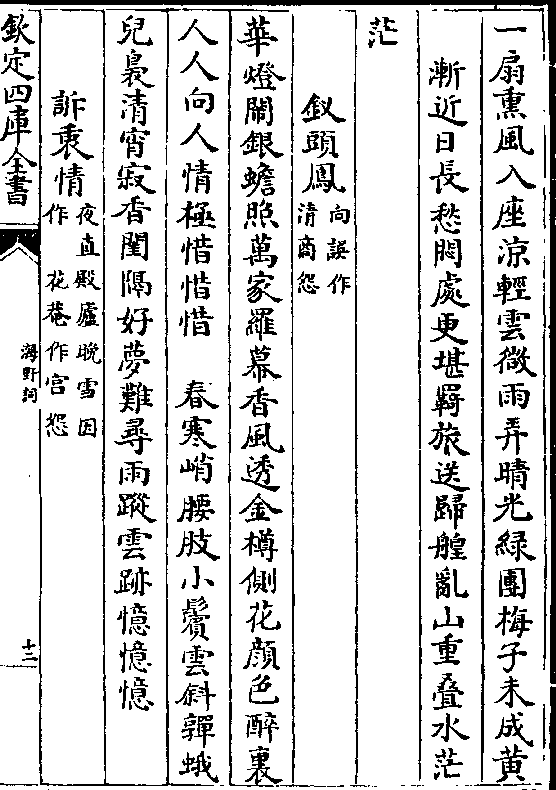 一扇熏風入座涼輕雲微雨弄晴光綠團梅子未成黃
漸近日長愁悶處更堪羇旅送歸艎亂山重叠水茫
茫
釵頭鳳向誤作清商怨
華燈鬧銀蟾照萬家羅幕香風透金樽側花顔色醉裏
人人向人情極惜惜惜　春寒峭腰肢小鬢雲斜嚲蛾
兒裊清宵寂香閨隔好夢難尋雨蹤雲跡憶憶憶
訴衷情夜直殿廬晚雪因作　花菴作宫怨
欽定四庫全書
海野詞
十三